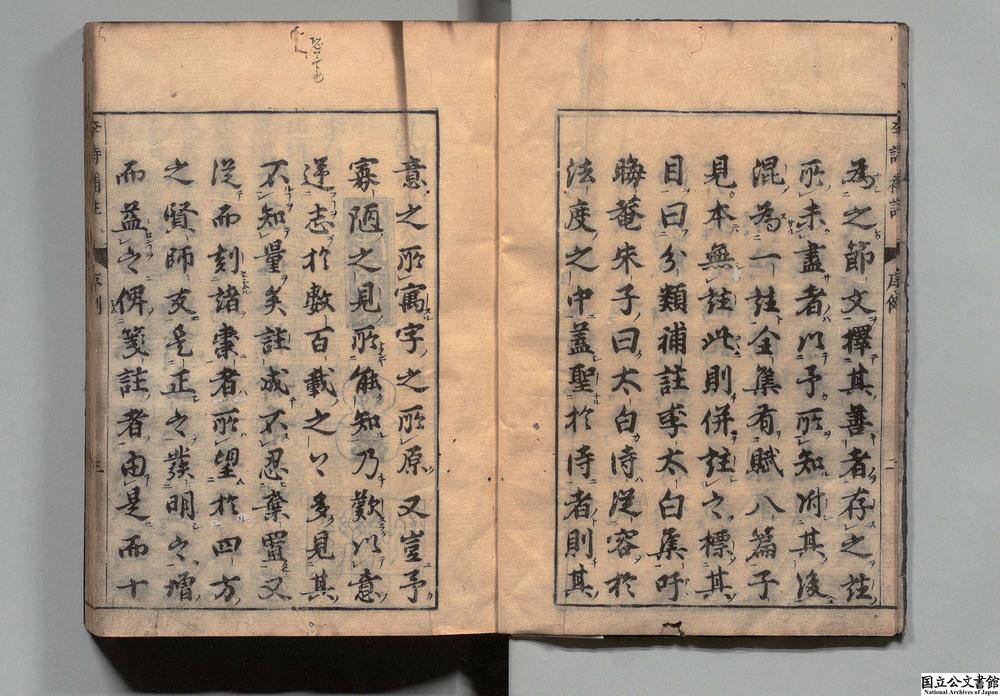 為之節文擇其善者存之註
所未盡者以予所知附其後
混為一註全集有賦八篇子
見本無註此則併註之標其
目曰分類補註李太白集吁
晦菴朱子曰太白詩從容於
法度之中蓋聖於詩者則其
意之所寓字之所原又豈予
寡陋之見所能知乃欲以意
逆志於數百載之上多見其
不知量矣註成不忍棄置又
從而刻諸棗者所望於四方
之賢師友是正之發明之增
而益之俾箋註者由是而十
李詩補註
序例
国立公文書館
National Archives of Japan